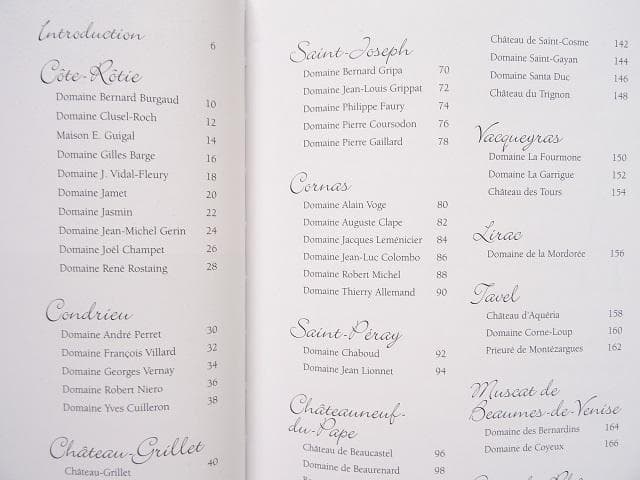 Introduction 6
Côte-Rôtie
Domaine Bernard Burgaud 10
Domaine Clusel-Roch 12
Maison E. Guigal 14
Domaine Gilles Barge 16
Domaine J. Vidal-Fleury 18
Domaine Jamet 20
Domaine Jasmin 22
Domaine Jean-Michel Gerin 24
Domaine Joël Champet 26
Domaine René Rostaing 28
Condrieu
Domaine André Perret 30
Domaine François Villard 32
Domaine Georges Vernay 34
Domaine Robert Niero 36
Domaine Yves Cuilleron 38
Château-Grillet
Château-Grillet 40
Saint-Joseph
Domaine Bernard Gripa 70
Domaine Jean-Louis Grippat 72
Domaine Philippe Faury 74
Domaine Pierre Coursodon 76
Domaine Pierre Gaillard 78
Cornas
Domaine Alain Voge 80
Domaine Auguste Clape 82
Domaine Jacques Leménicier 84
Domaine Jean-Luc Colombo 86
Domaine Robert Michel 88
Domaine Thierry Allemand 90
Saint-Péray
Domaine Chaboud 92
Domaine Jean Lionnet 94
Châteauneuf-
du-Pape
Château de Beaucastel 96
Domaine de Beaurenard 98
Château de Saint-Cosme 142
Domaine Saint-Gayan 144
Domaine Santa Duc 146
Château du Trignon 148
Vacqueyras
Domaine La Fourmone 150
Domaine La Garrigue 152
Château des Tours 154
Lirac
Domaine de la Mordorée 156
Tavel
Château d'Aquéria 158
Domaine Corne-Loup 160
Prieuré de Montézargues 162
Muscat de
Beaumes-de-Venise
Domaine des Bernardins 164
Domaine de Coyeux 166